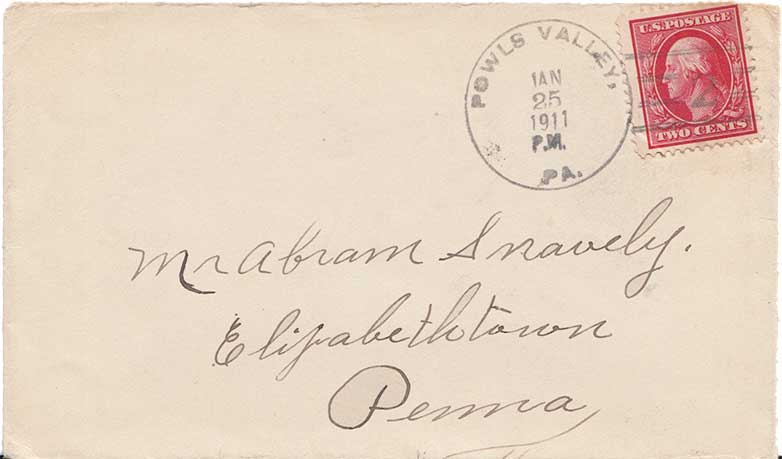 POWLS VALLEY,
JAN
25
1911
P.M.
PA.
U.S. POSTAGE
TWO CENTS
Mr Abram Snavely.
Elizabethtown
Penna